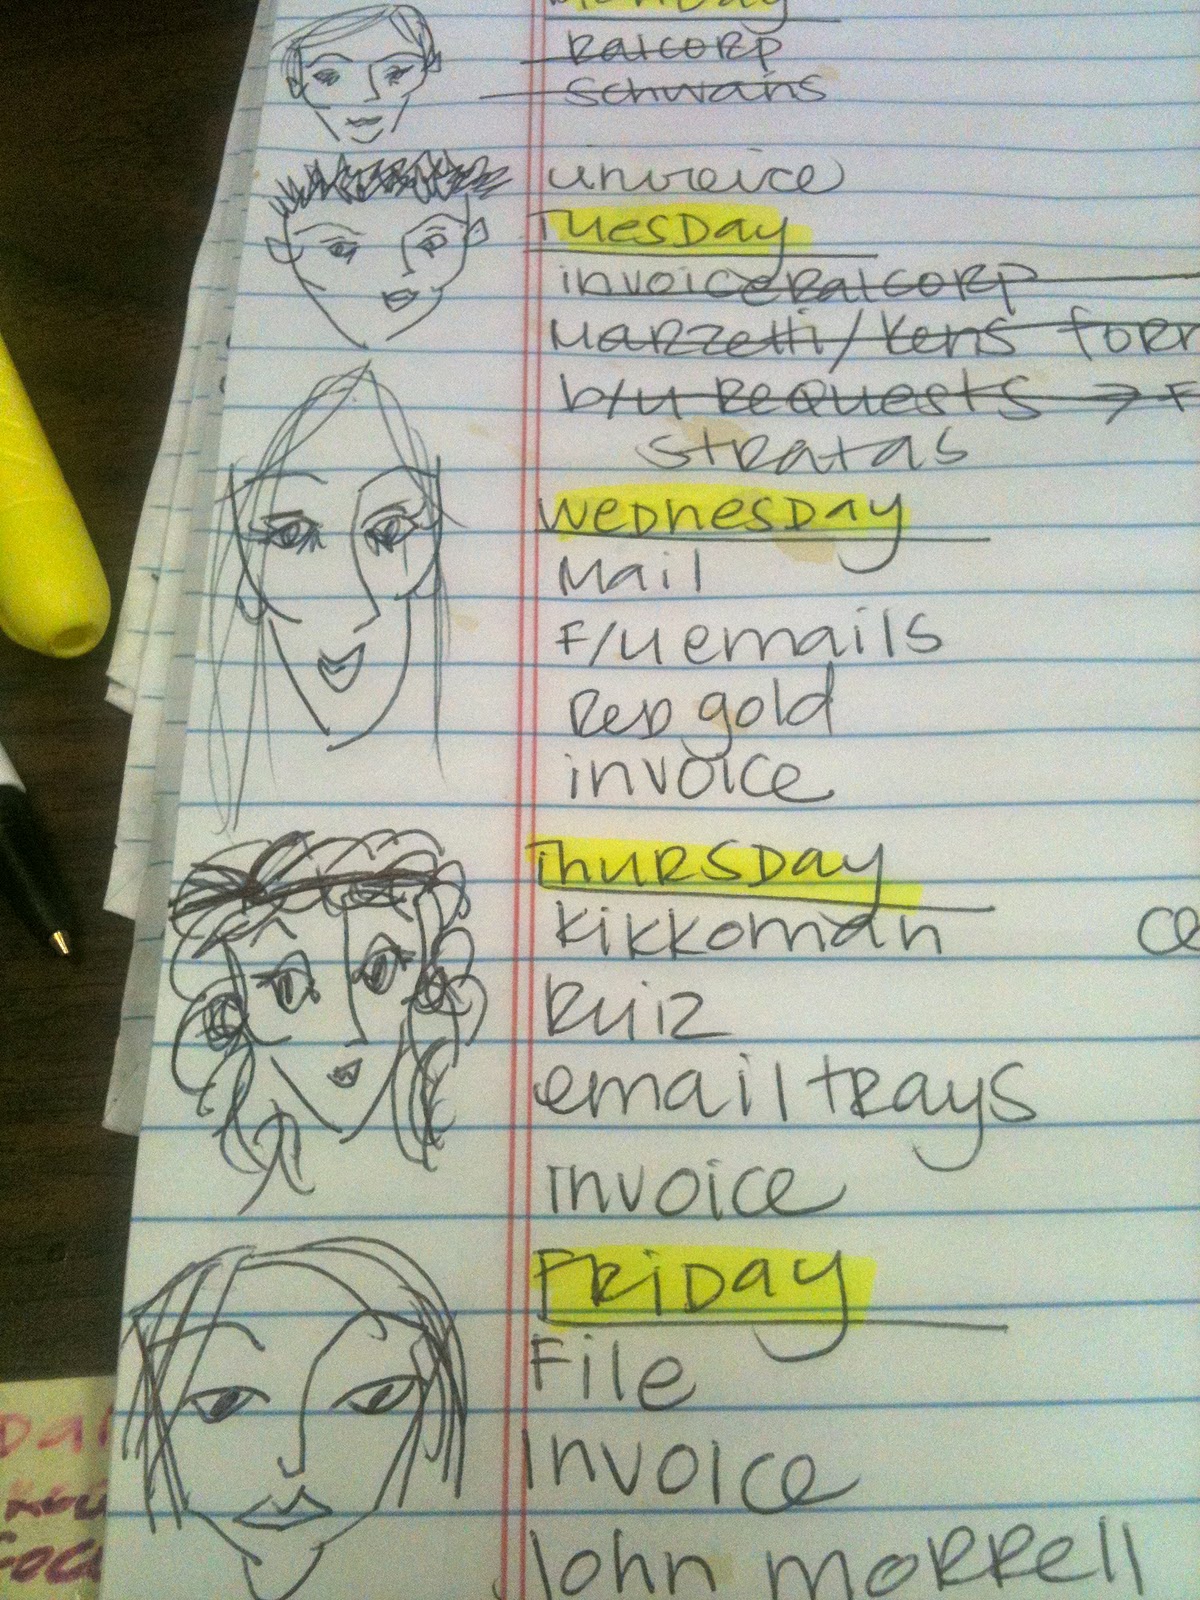 Monday
Ralcorp
Schwans
invoice
Tuesday
invoice Ralcorp
Marzetti/Kens
b/u Requests → F
stratas
Wednesday
Mail
F/u emails
Red gold
invoice
Thursday
Kikkoman
Ruiz
email trays
Invoice
Friday
File
Invoice
John Morrell